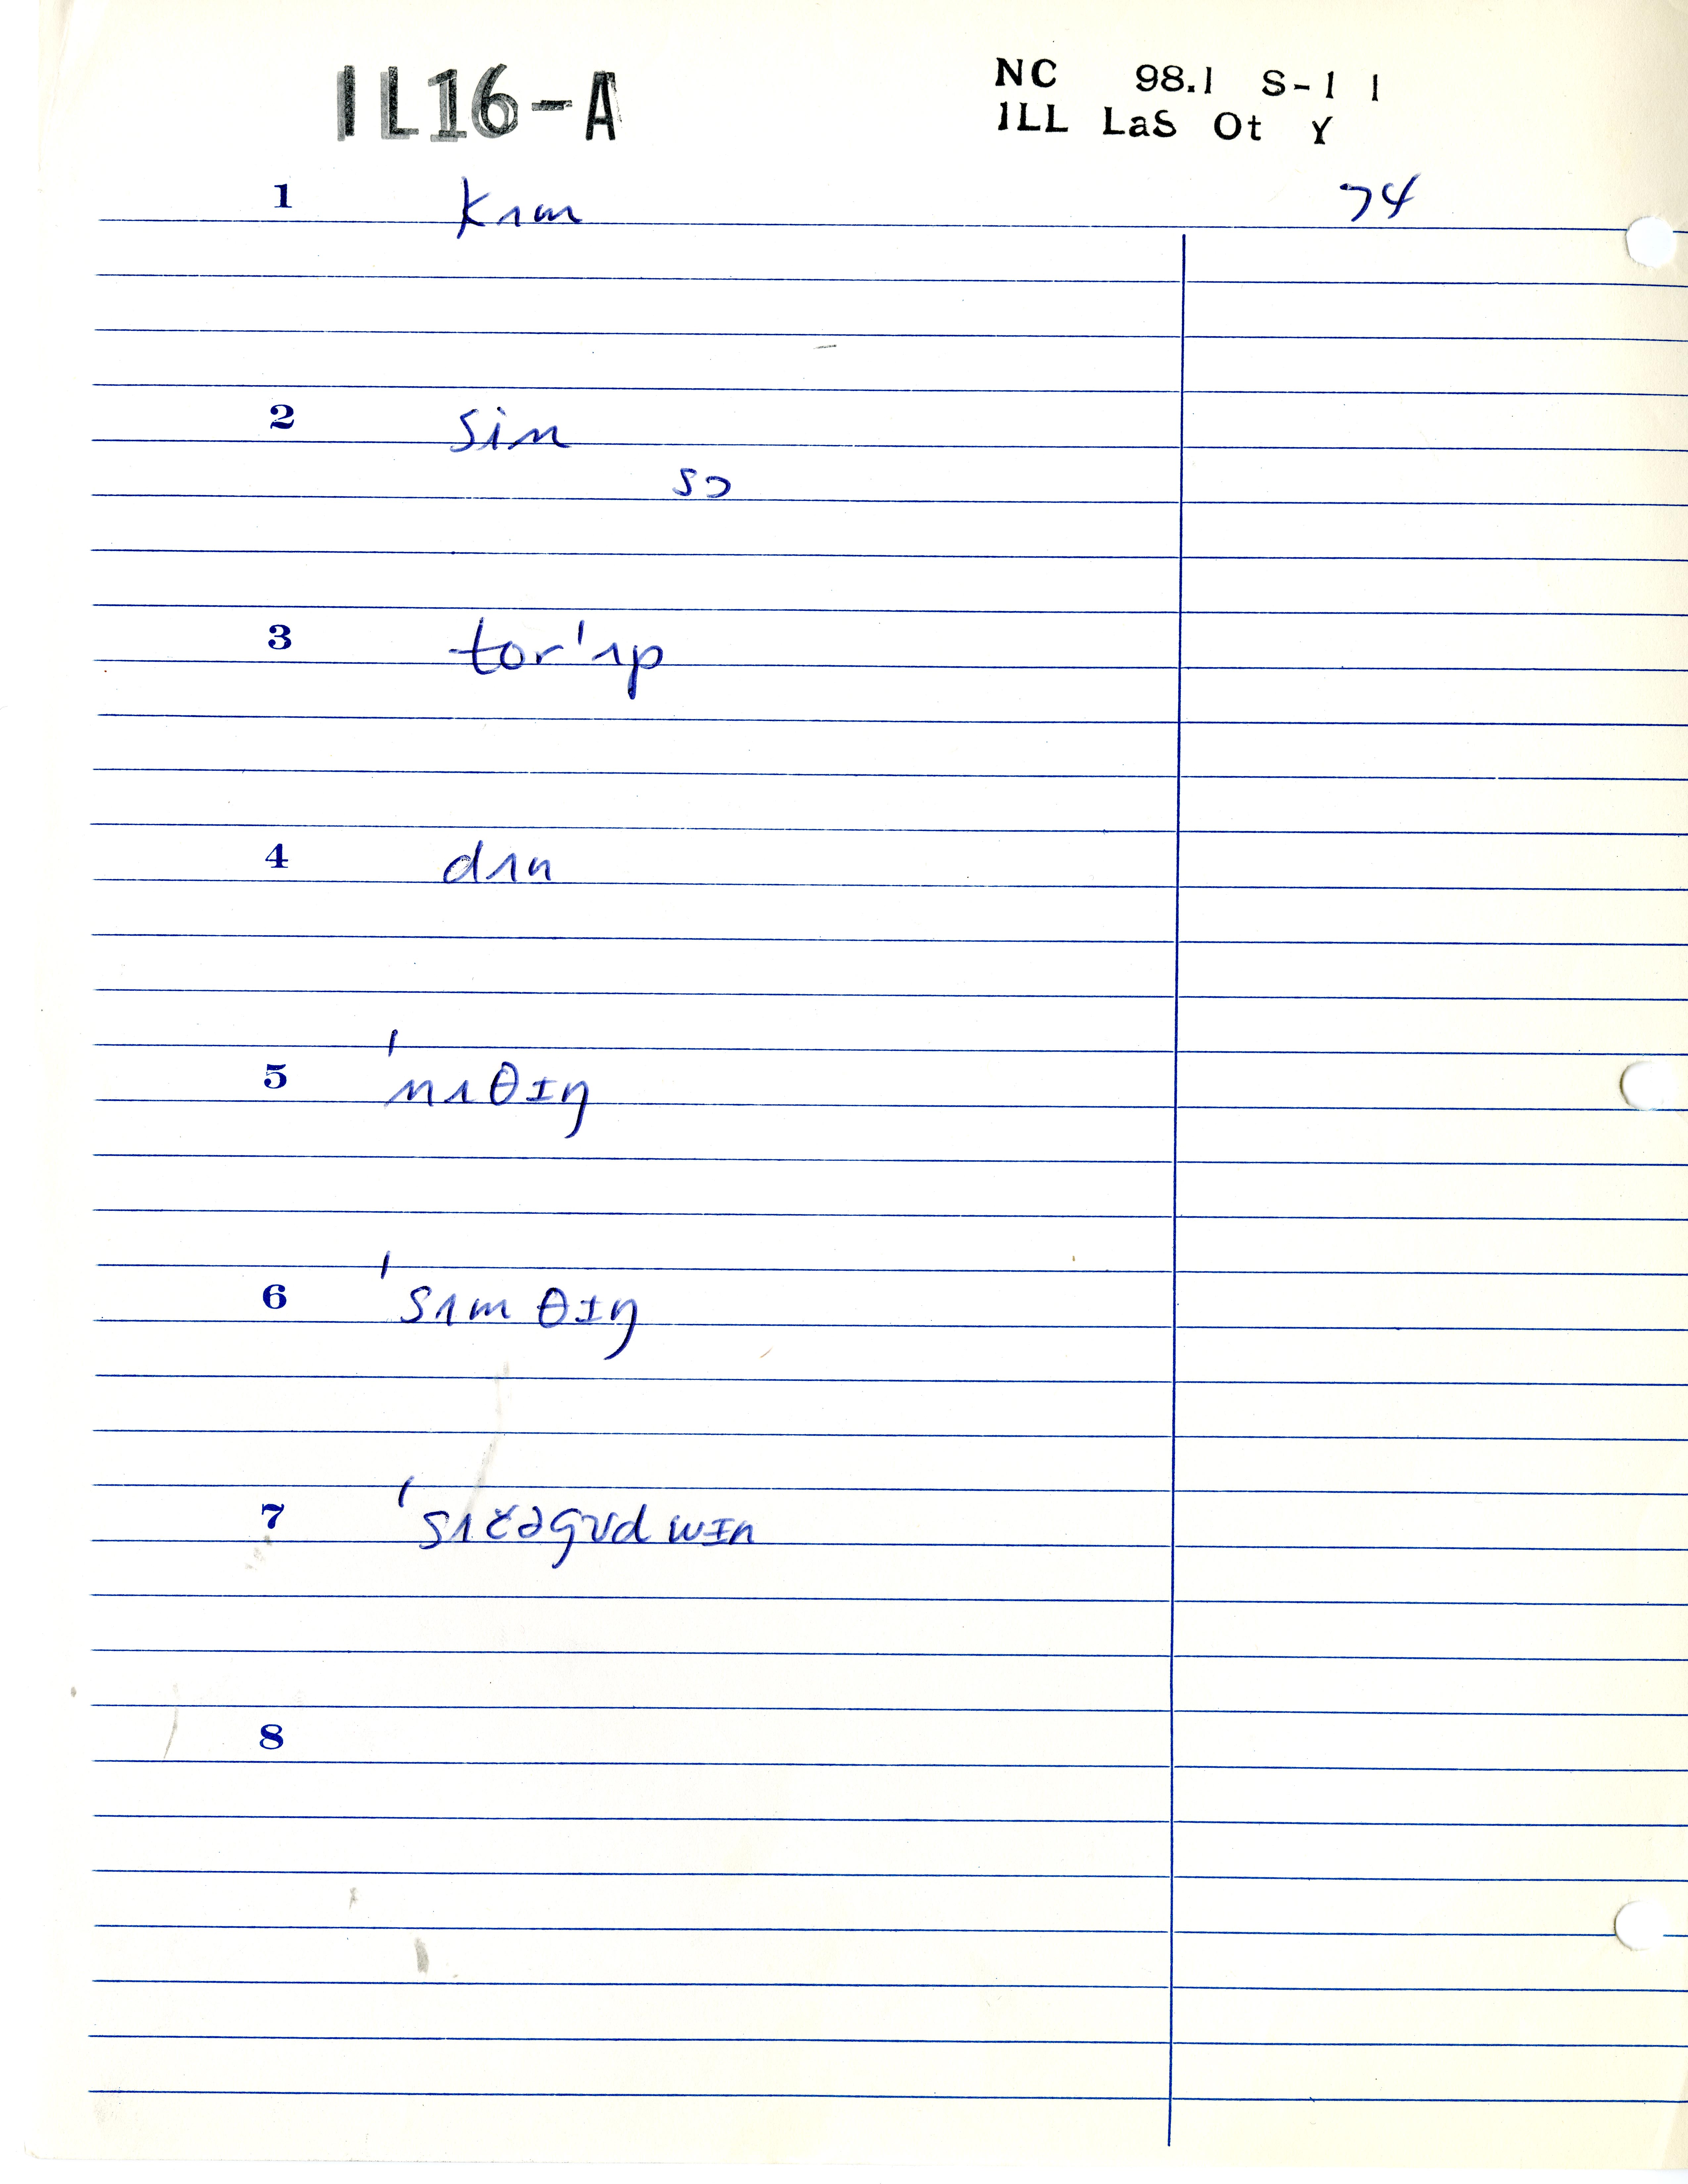 IL16-A
NC 98.1 S-1 1
ILL LaS Ot Y
74
1 kʌm
2 sin
sɔ
3 tor'ʌp
4 dʌn
5 'nʌθɪŋ
6 'sʌmθɪŋ
7 'sʌčəgʊdwɪn
8